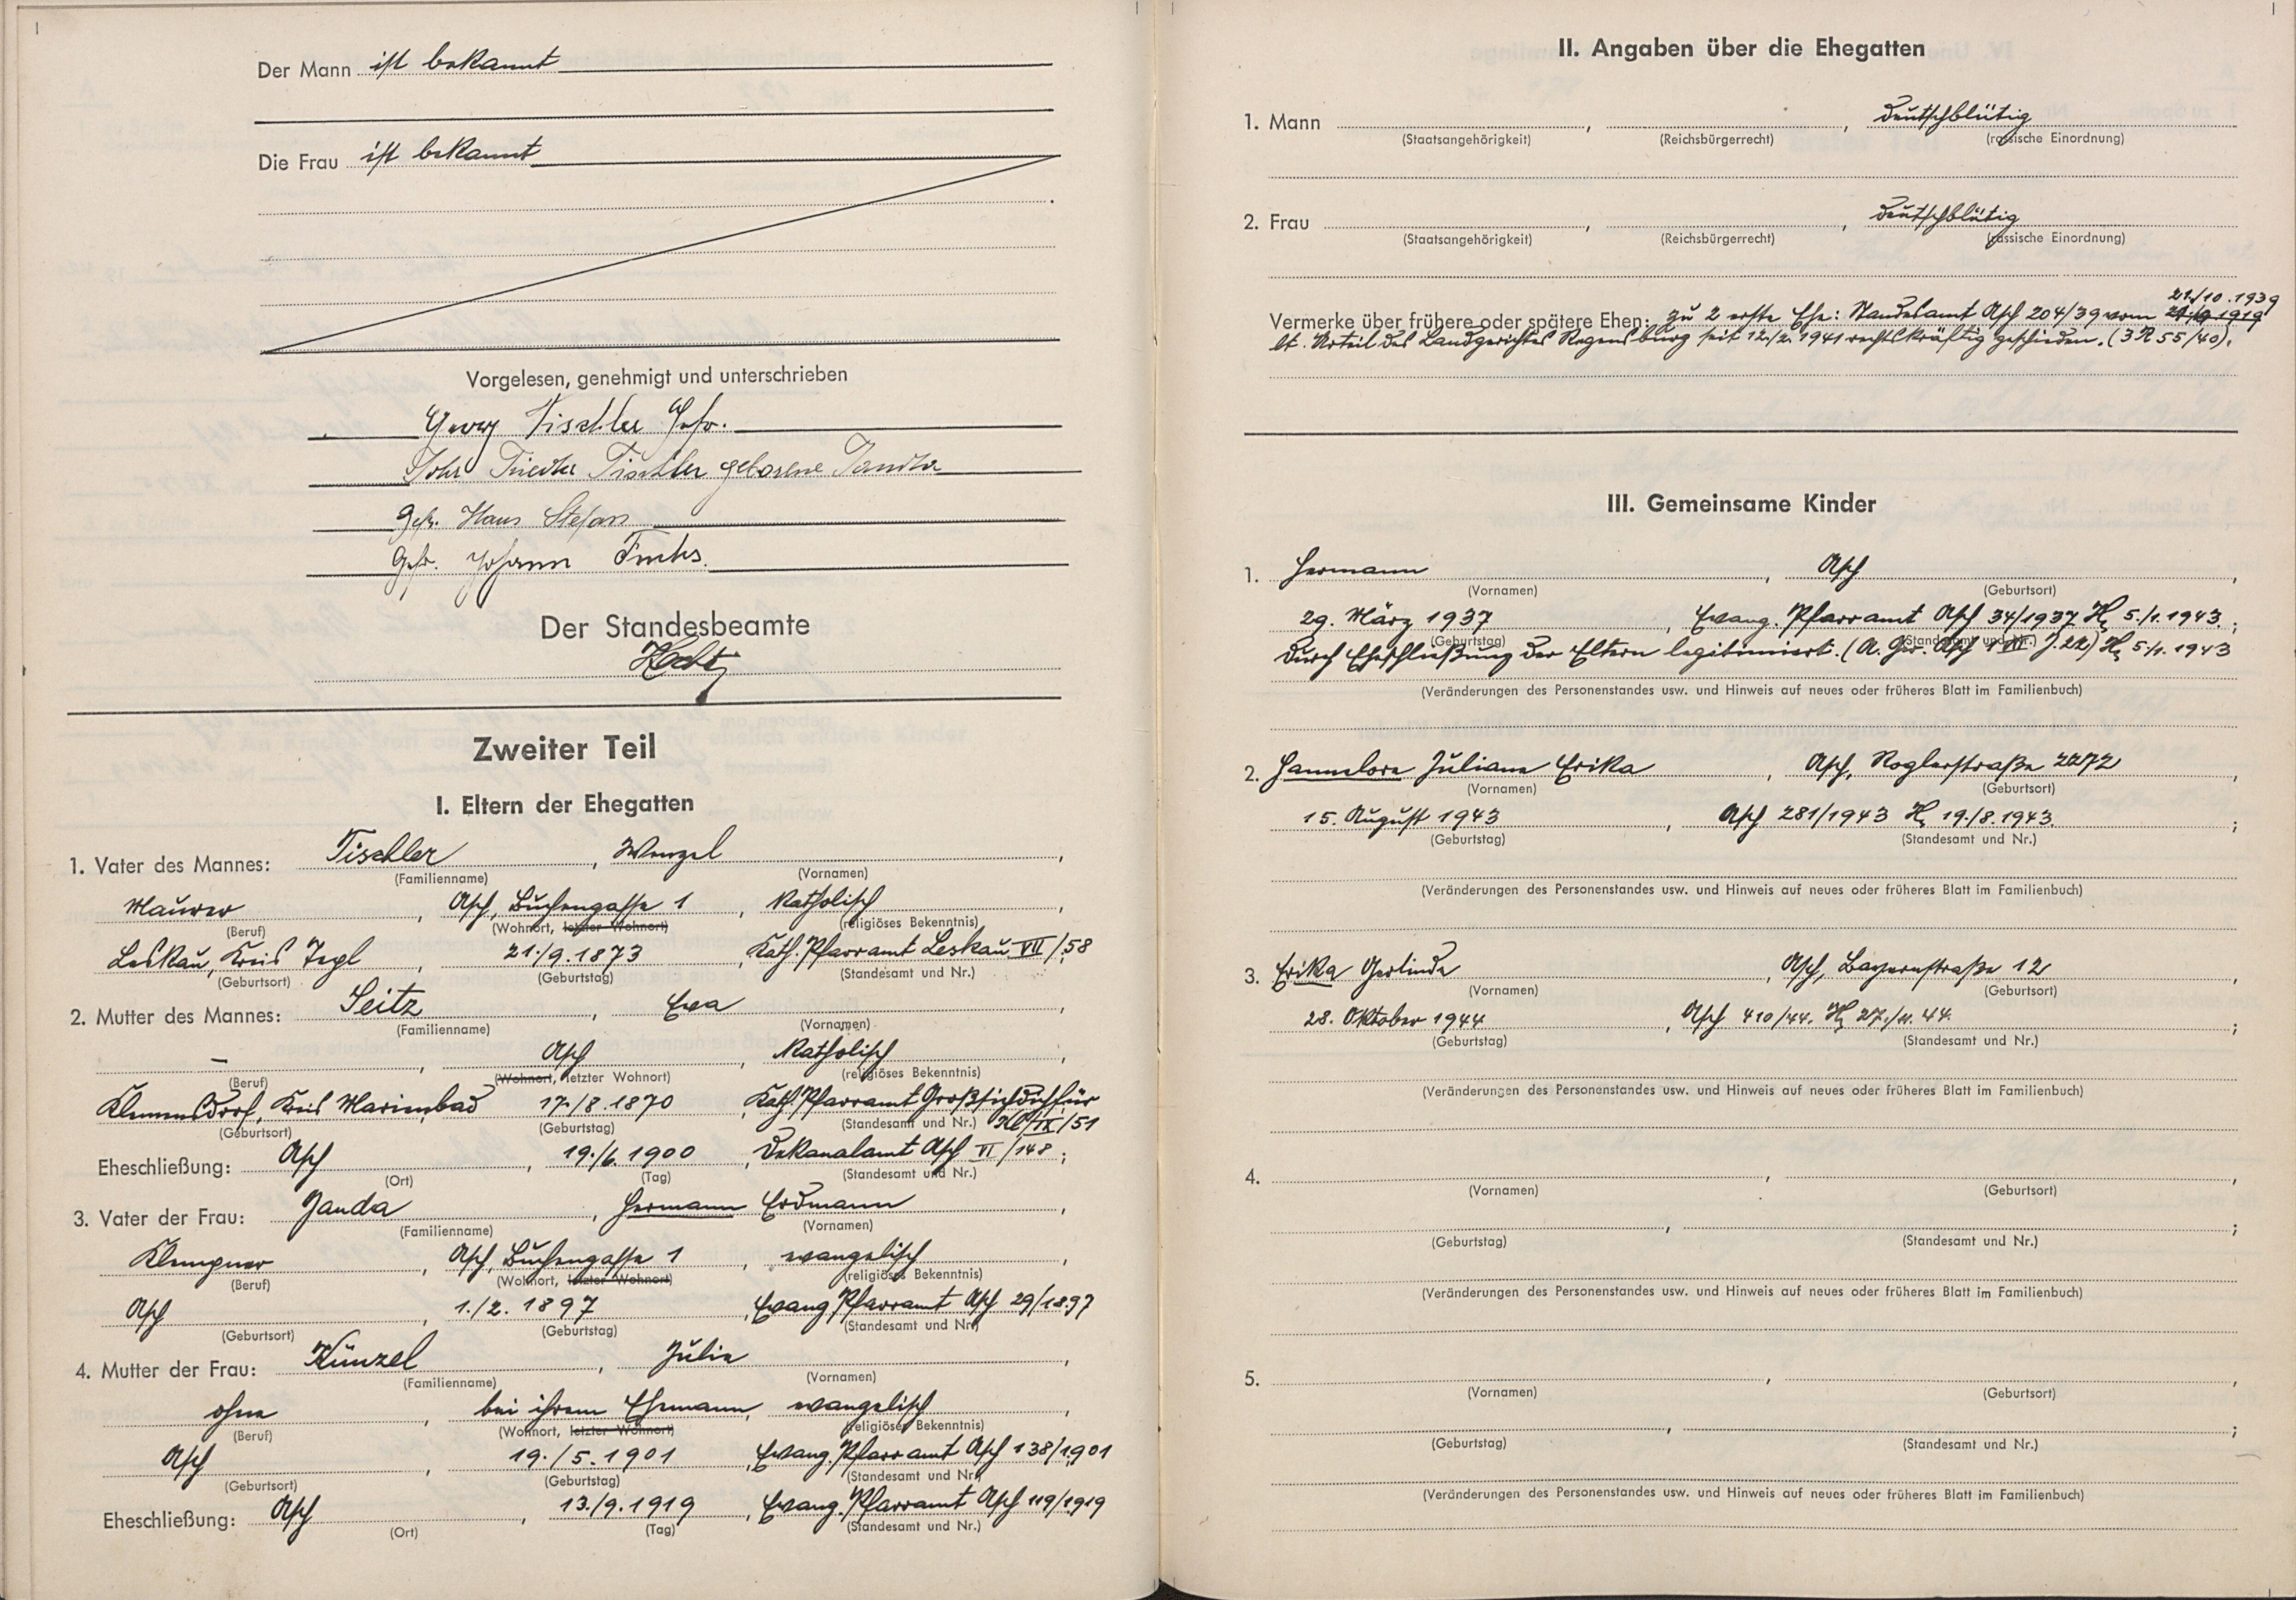 Der Mann ist bekannt
Die Frau ist bekannt
Vorgelesen, genehmigt und unterschrieben
Georg Tischler Gefr.
Tischler geborene Janda
Gefr. Hans Stefan
Gefr. Johann Fuchs.
Der Standesbeamte
Zweiter Teil
I. Eltern der Ehegatten
1. Vater des Mannes: Tischler, Wenzel,
(Familienname) (Vornamen)
Maurer, Asch, Buchengasse 1, katholisch,
(Beruf) (Wohnort, letzter Wohnort) (religiöses Bekenntnis)
Leskau, Kreis Tepl, 21./9.1873, Kath. Pfarramt Leskau VII/58
(Geburtsort) (Geburtstag) (Standesamt und Nr.)
2. Mutter des Mannes: Seitz, Eva,
(Familienname) (Vornamen)
–, Asch, katholisch,
(Beruf) (Wohnort, letzter Wohnort) (religiöses Bekenntnis)
Klemensdorf, Kreis Marienbad 17./8.1870, Kath. Pfarramt
(Geburtsort) (Geburtstag) (Standesamt und Nr.) IX/51
Eheschließung: Asch, 19./6.1900, Dekanalamt Asch VI/148;
(Ort) (Tag) (Standesamt und Nr.)
3. Vater der Frau: Janda, Hermann Erdmann,
(Familienname) (Vornamen)
Klempner, Asch, Buchengasse 1, evangelisch,
(Beruf) (Wohnort, letzter Wohnort) (religiöses Bekenntnis)
Asch, 1./2.1897, Evang. Pfarramt Asch 29/1897
(Geburtsort) (Geburtstag) (Standesamt und Nr.)
4. Mutter der Frau: Künzel, Julie,
(Familienname) (Vornamen)
ohne, bei ihrem Ehemann, evangelisch,
(Beruf) (Wohnort, letzter Wohnort) (religiöses Bekenntnis)
Asch, 19./5.1901, Evang. Pfarramt Asch 138/1901
(Geburtsort) (Geburtstag) (Standesamt und Nr.)
Eheschließung: Asch, 13./9.1919, Evang. Pfarramt Asch 119/1919
(Ort) (Tag) (Standesamt und Nr.)
II. Angaben über die Ehegatten
1. Mann , , deutschblütig
(Staatsangehörigkeit) (Reichsbürgerrecht) (rassische Einordnung)
2. Frau , , deutschblütig
(Staatsangehörigkeit) (Reichsbürgerrecht) (rassische Einordnung)
21./10.1939
Vermerke über frühere oder spätere Ehen: zu 2 erste Ehe: Standesamt Asch 204/39 vom
lt. Urteil des Landgerichtes Regensburg seit 12./2.1941 rechtskräftig geschieden. (3 R 55/40).
III. Gemeinsame Kinder
1. Hermann, Asch,
(Vornamen) (Geburtsort)
29. März 1937, Evang. Pfarramt Asch 34/1937 5./1.1943.;
(Geburtstag) (Standesamt und Nr.)
durch Eheschließung der Eltern legitimiert. (A. Ger. Asch 5./1.1943
(Veränderungen des Personenstandes usw. und Hinweis auf neues oder früheres Blatt im Familienbuch)
2. Hannelore Juliane Erika, Asch, Roglerstraße 2272,
(Vornamen) (Geburtsort)
15. August 1943, Asch 281/1943 19./8.1943.;
(Geburtstag) (Standesamt und Nr.)
(Veränderungen des Personenstandes usw. und Hinweis auf neues oder früheres Blatt im Familienbuch)
3. Erika Gerlinde, Asch, Bayernstraße 12,
(Vornamen) (Geburtsort)
28. Oktober 1944, Asch 410/44. 27./11.44.;
(Geburtstag) (Standesamt und Nr.)
(Veränderungen des Personenstandes usw. und Hinweis auf neues oder früheres Blatt im Familienbuch)
4. , ,
(Vornamen) (Geburtsort)
, ;
(Geburtstag) (Standesamt und Nr.)
(Veränderungen des Personenstandes usw. und Hinweis auf neues oder früheres Blatt im Familienbuch)
5. , ,
(Vornamen) (Geburtsort)
, ;
(Geburtstag) (Standesamt und Nr.)
(Veränderungen des Personenstandes usw. und Hinweis auf neues oder früheres Blatt im Familienbuch)